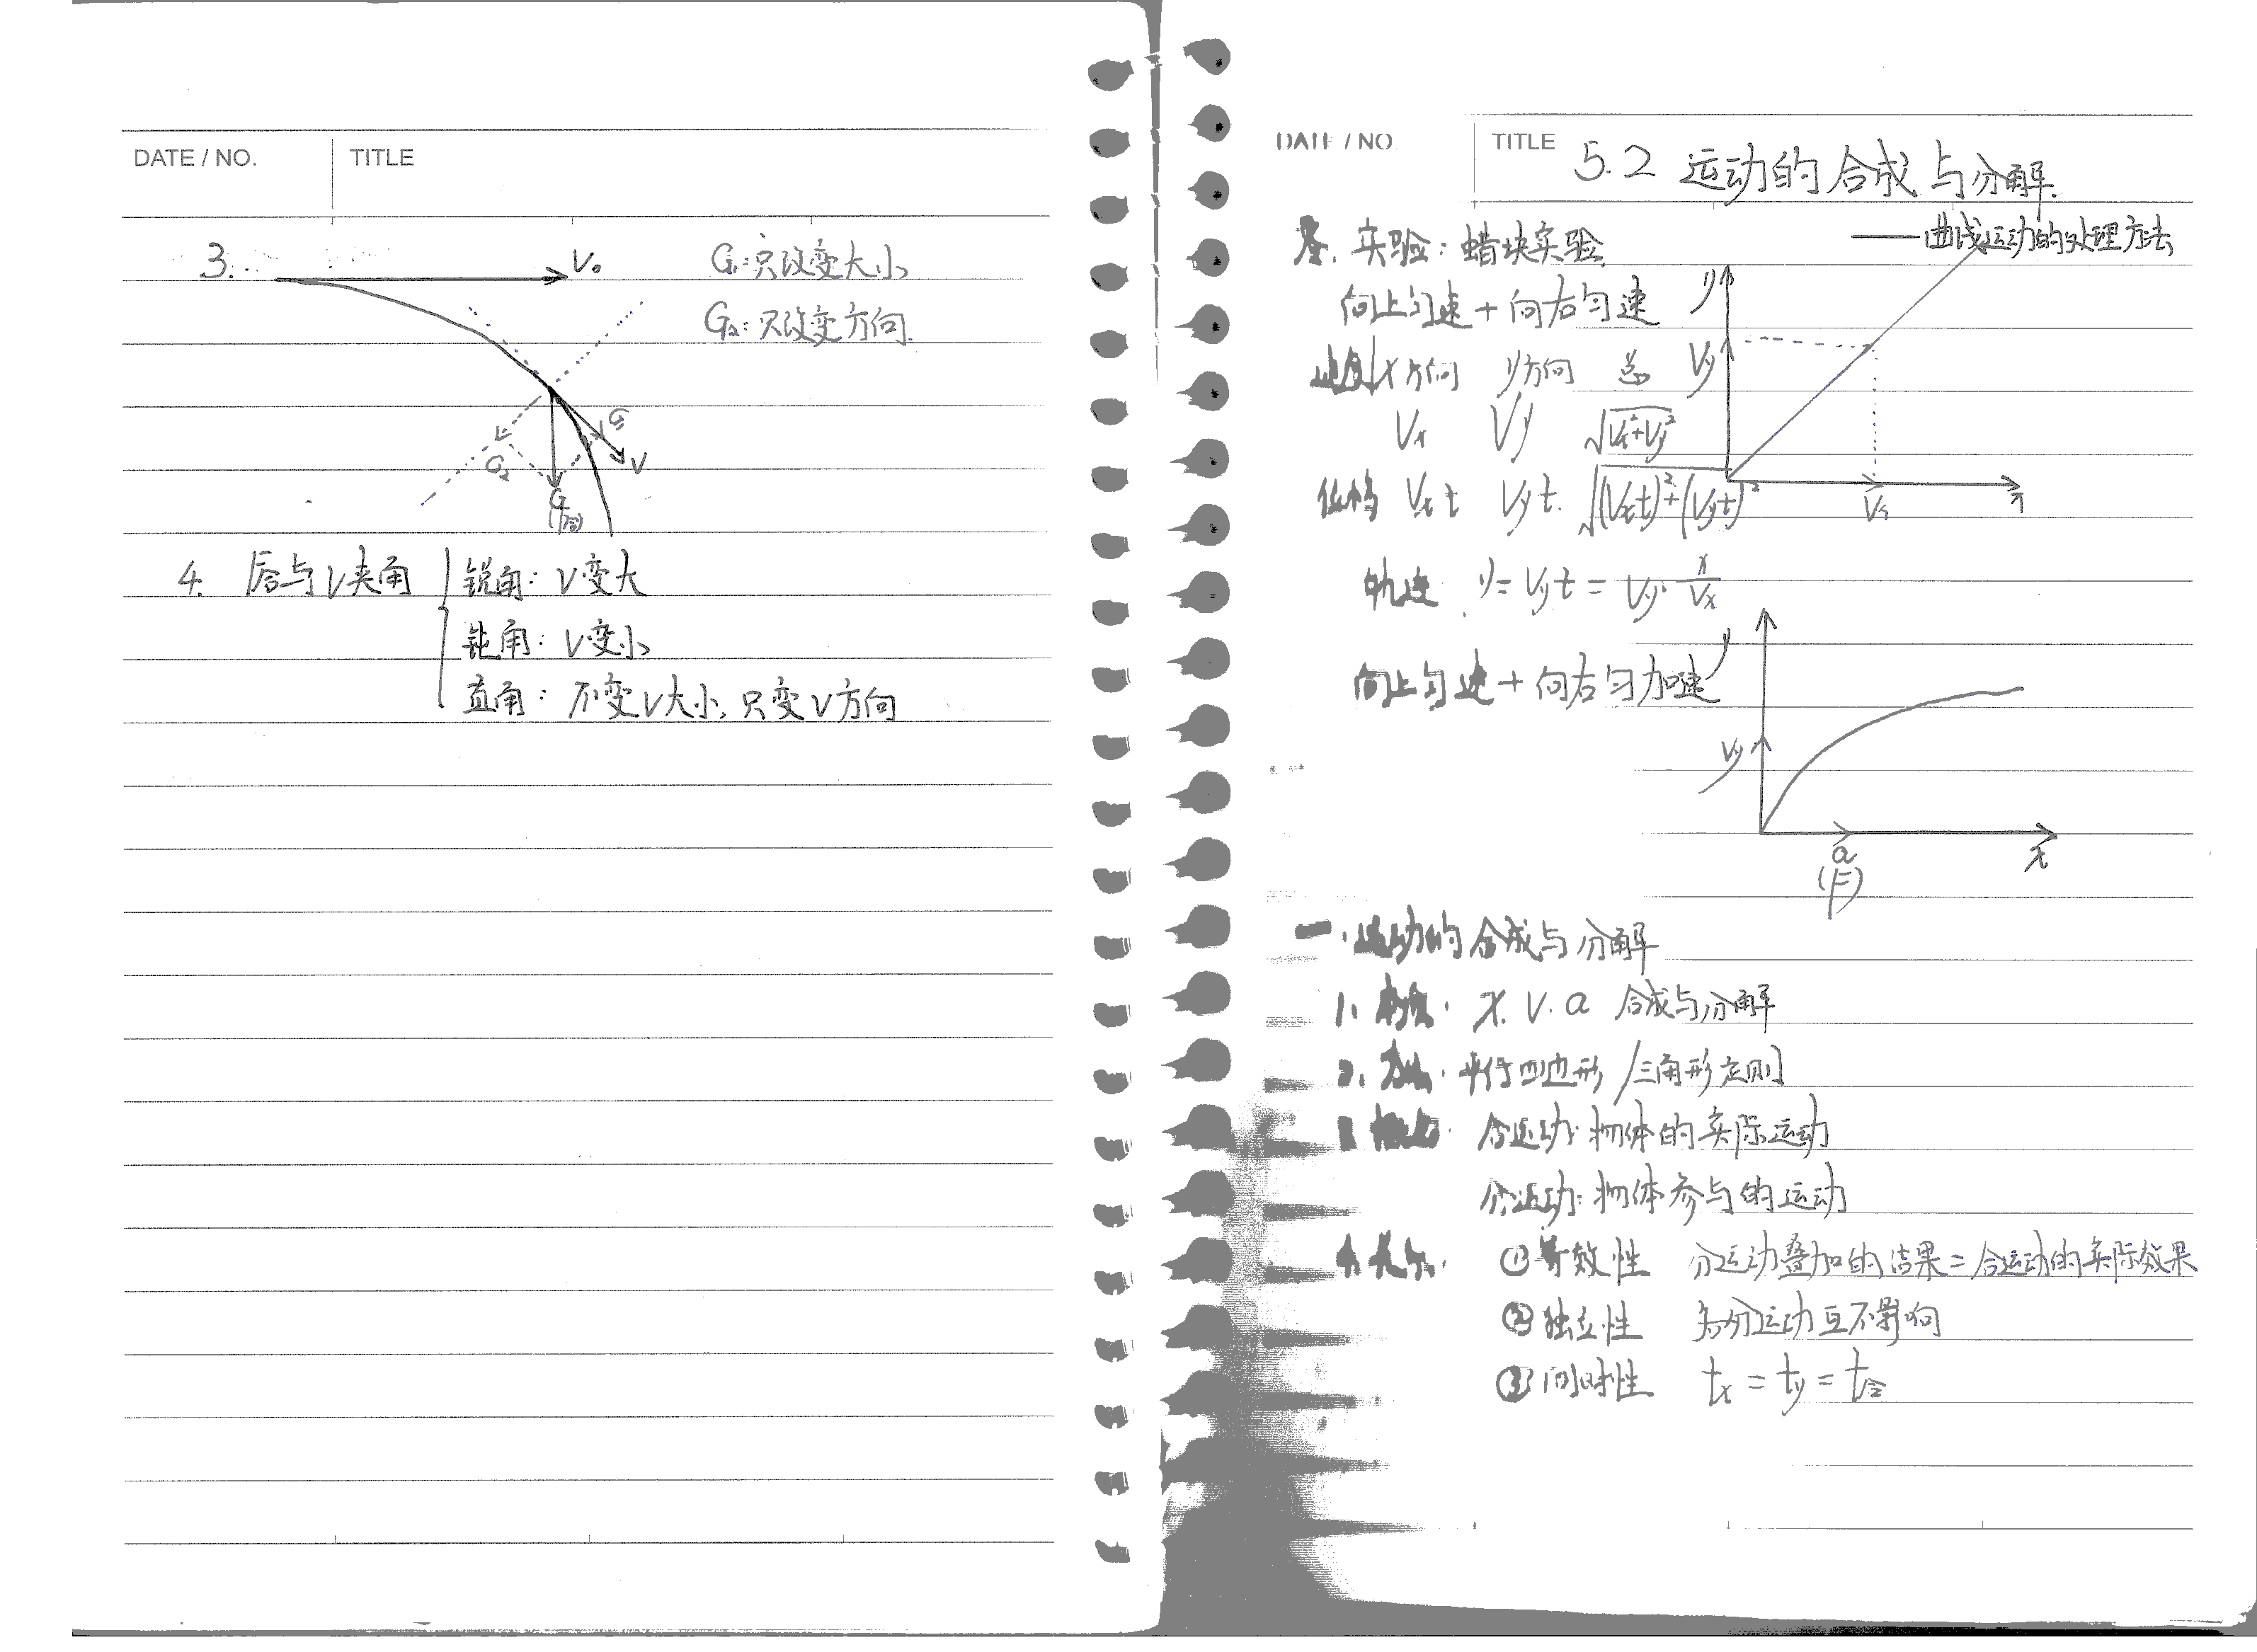 DATE / NO. TITLE
3.
V₀
G₁:只改变大小
G₂:只改变方向.
G₁
V
G₂
G
(F合)
4. F合与V夹角
锐角: V变大
钝角: V变小
直角: 不变V大小, 只变V方向
DATE / NO TITLE 5.2 运动的合成与分解
——曲线运动的处理方法
实验: 蜡块实验
向上匀速 + 向右匀速
y
x方向 y方向 总
Vy
Vx Vy √Vx²+Vy²
位移 Vxt Vyt. √(Vxt)²+(Vyt)²
Vx
x
轨迹 y = Vyt = Vy·x/Vx
向上匀速 + 向右匀加速
y
Vy
a
x
(F)
一. 运动的合成与分解
1. x. v. a 合成与分解
2. 方法. 平行四边形/三角形定则
合运动: 物体的实际运动
分运动: 物体参与的运动
①等效性 分运动叠加的结果=合运动的实际效果
②独立性 各分运动互不影响
③同时性 tx = ty = t合